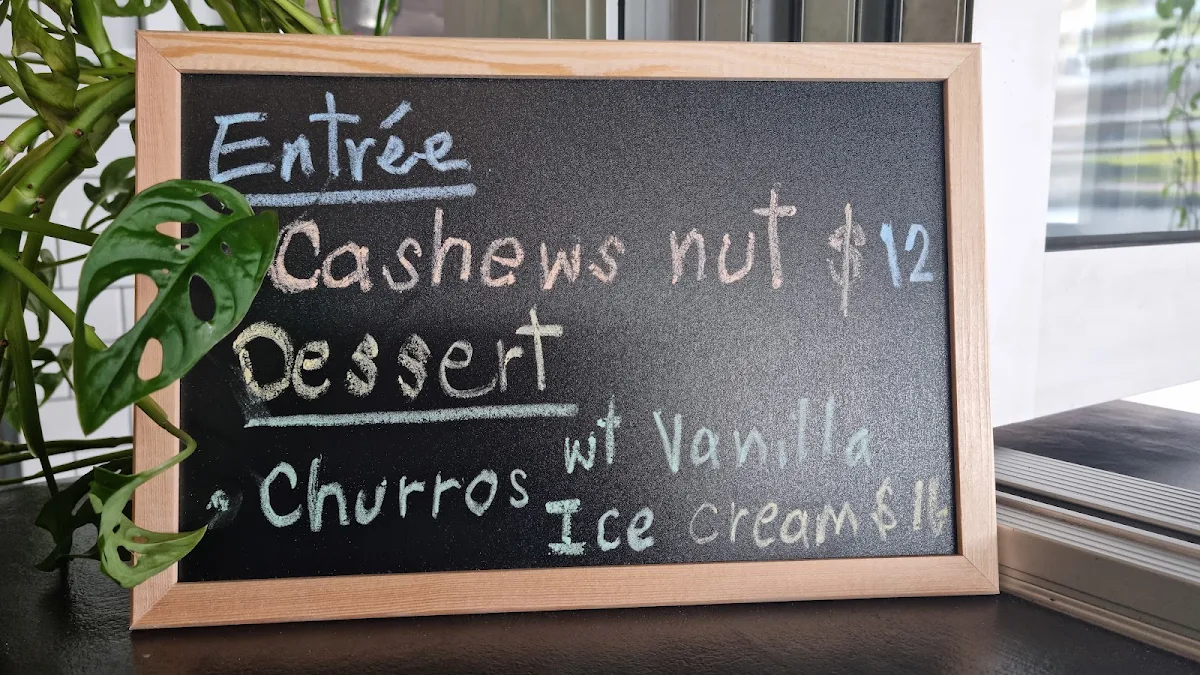 Entrée
Cashews nut $12
Dessert
Churros wt Vanilla
Ice cream $